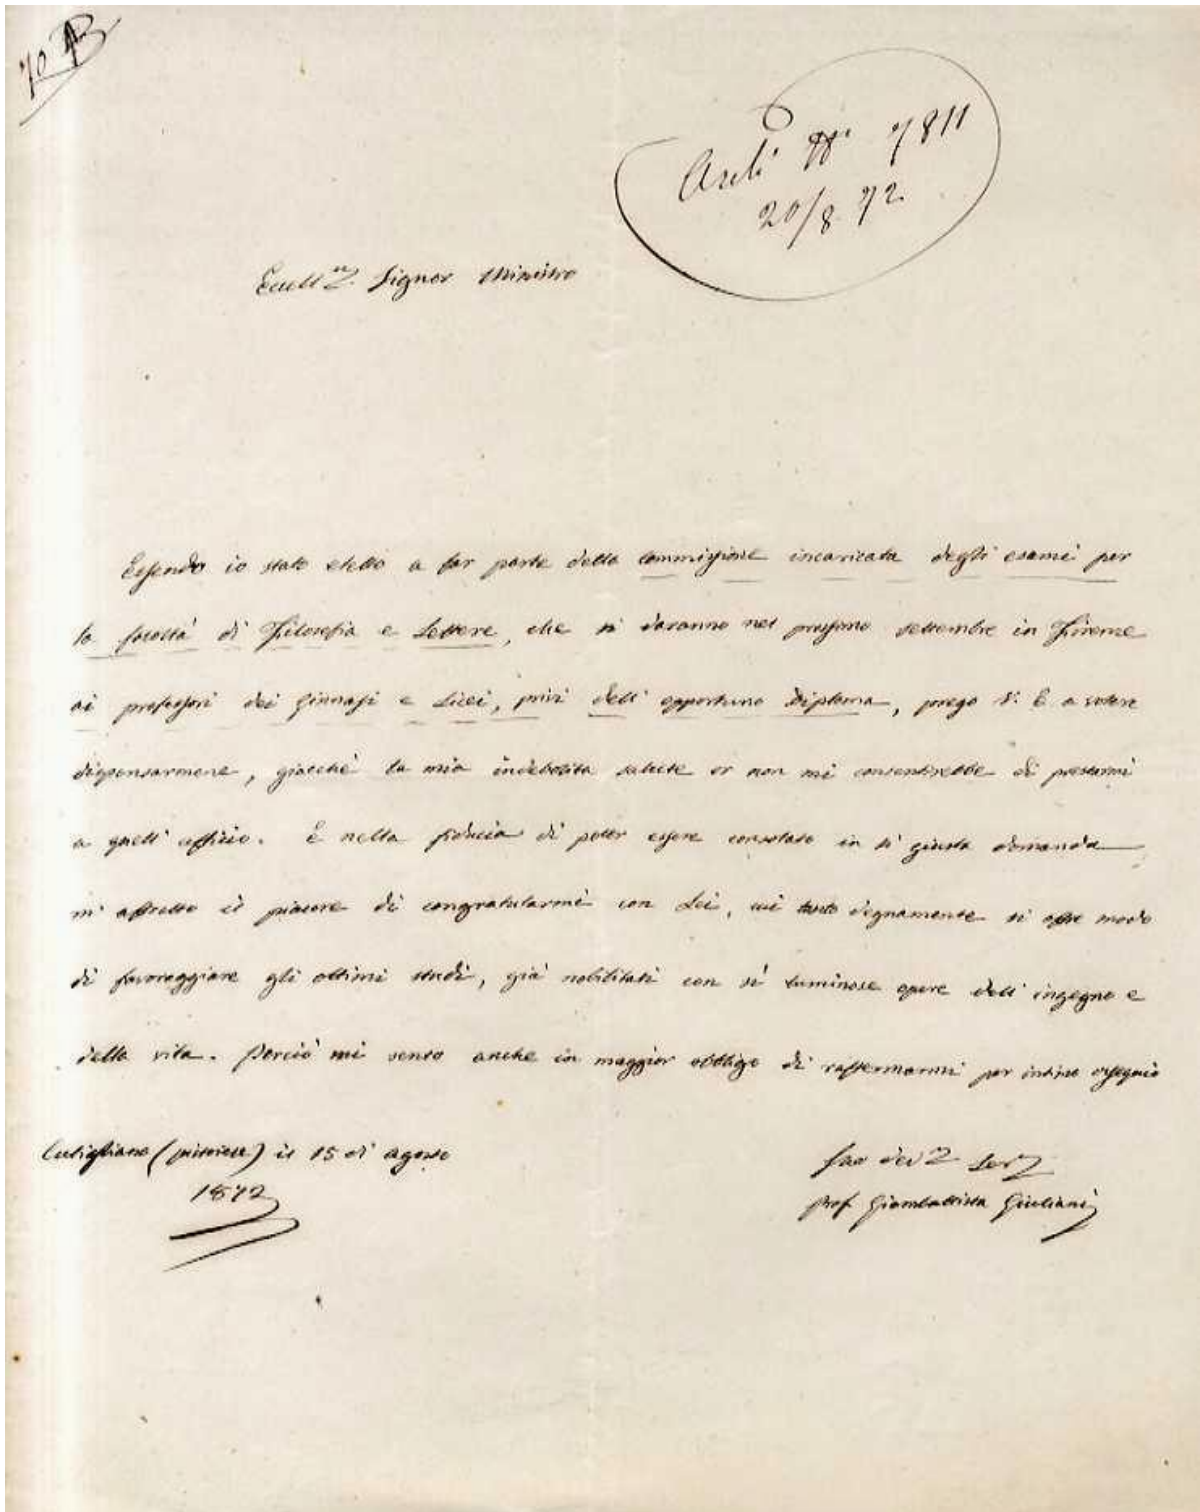 70 B
7811
20/8 72
Eccell.mo Signor Ministro
Essendo io stato eletto a far parte della Commissione incaricata degli esami per
la facoltà di Filosofia e Lettere, che si daranno nel prossimo settembre in Firenze
ai professori dei Ginnasi e Licei, privi dell' opportuno Diploma, prego V. E a volere
dispensarmene, giacchè la mia indebolita salute or non mi consentirebbe di prestarmi
a quell' ufficio. E nella fiducia di poter essere consolato in sì giusta domanda
m' affretto il piacere di congratularmi con Lei, cui tanto degnamente si offre modo
di favoreggiare gli ottimi studi, già nobilitati con sì luminose opere dell' ingegno e
della vita. Perciò mi sento anche in maggior obbligo di raffermarmi per intimo ossequio
Cutigliano (pistoiese) il 15 di agosto
1872
suo dev.
prof Giambattista Giuliani